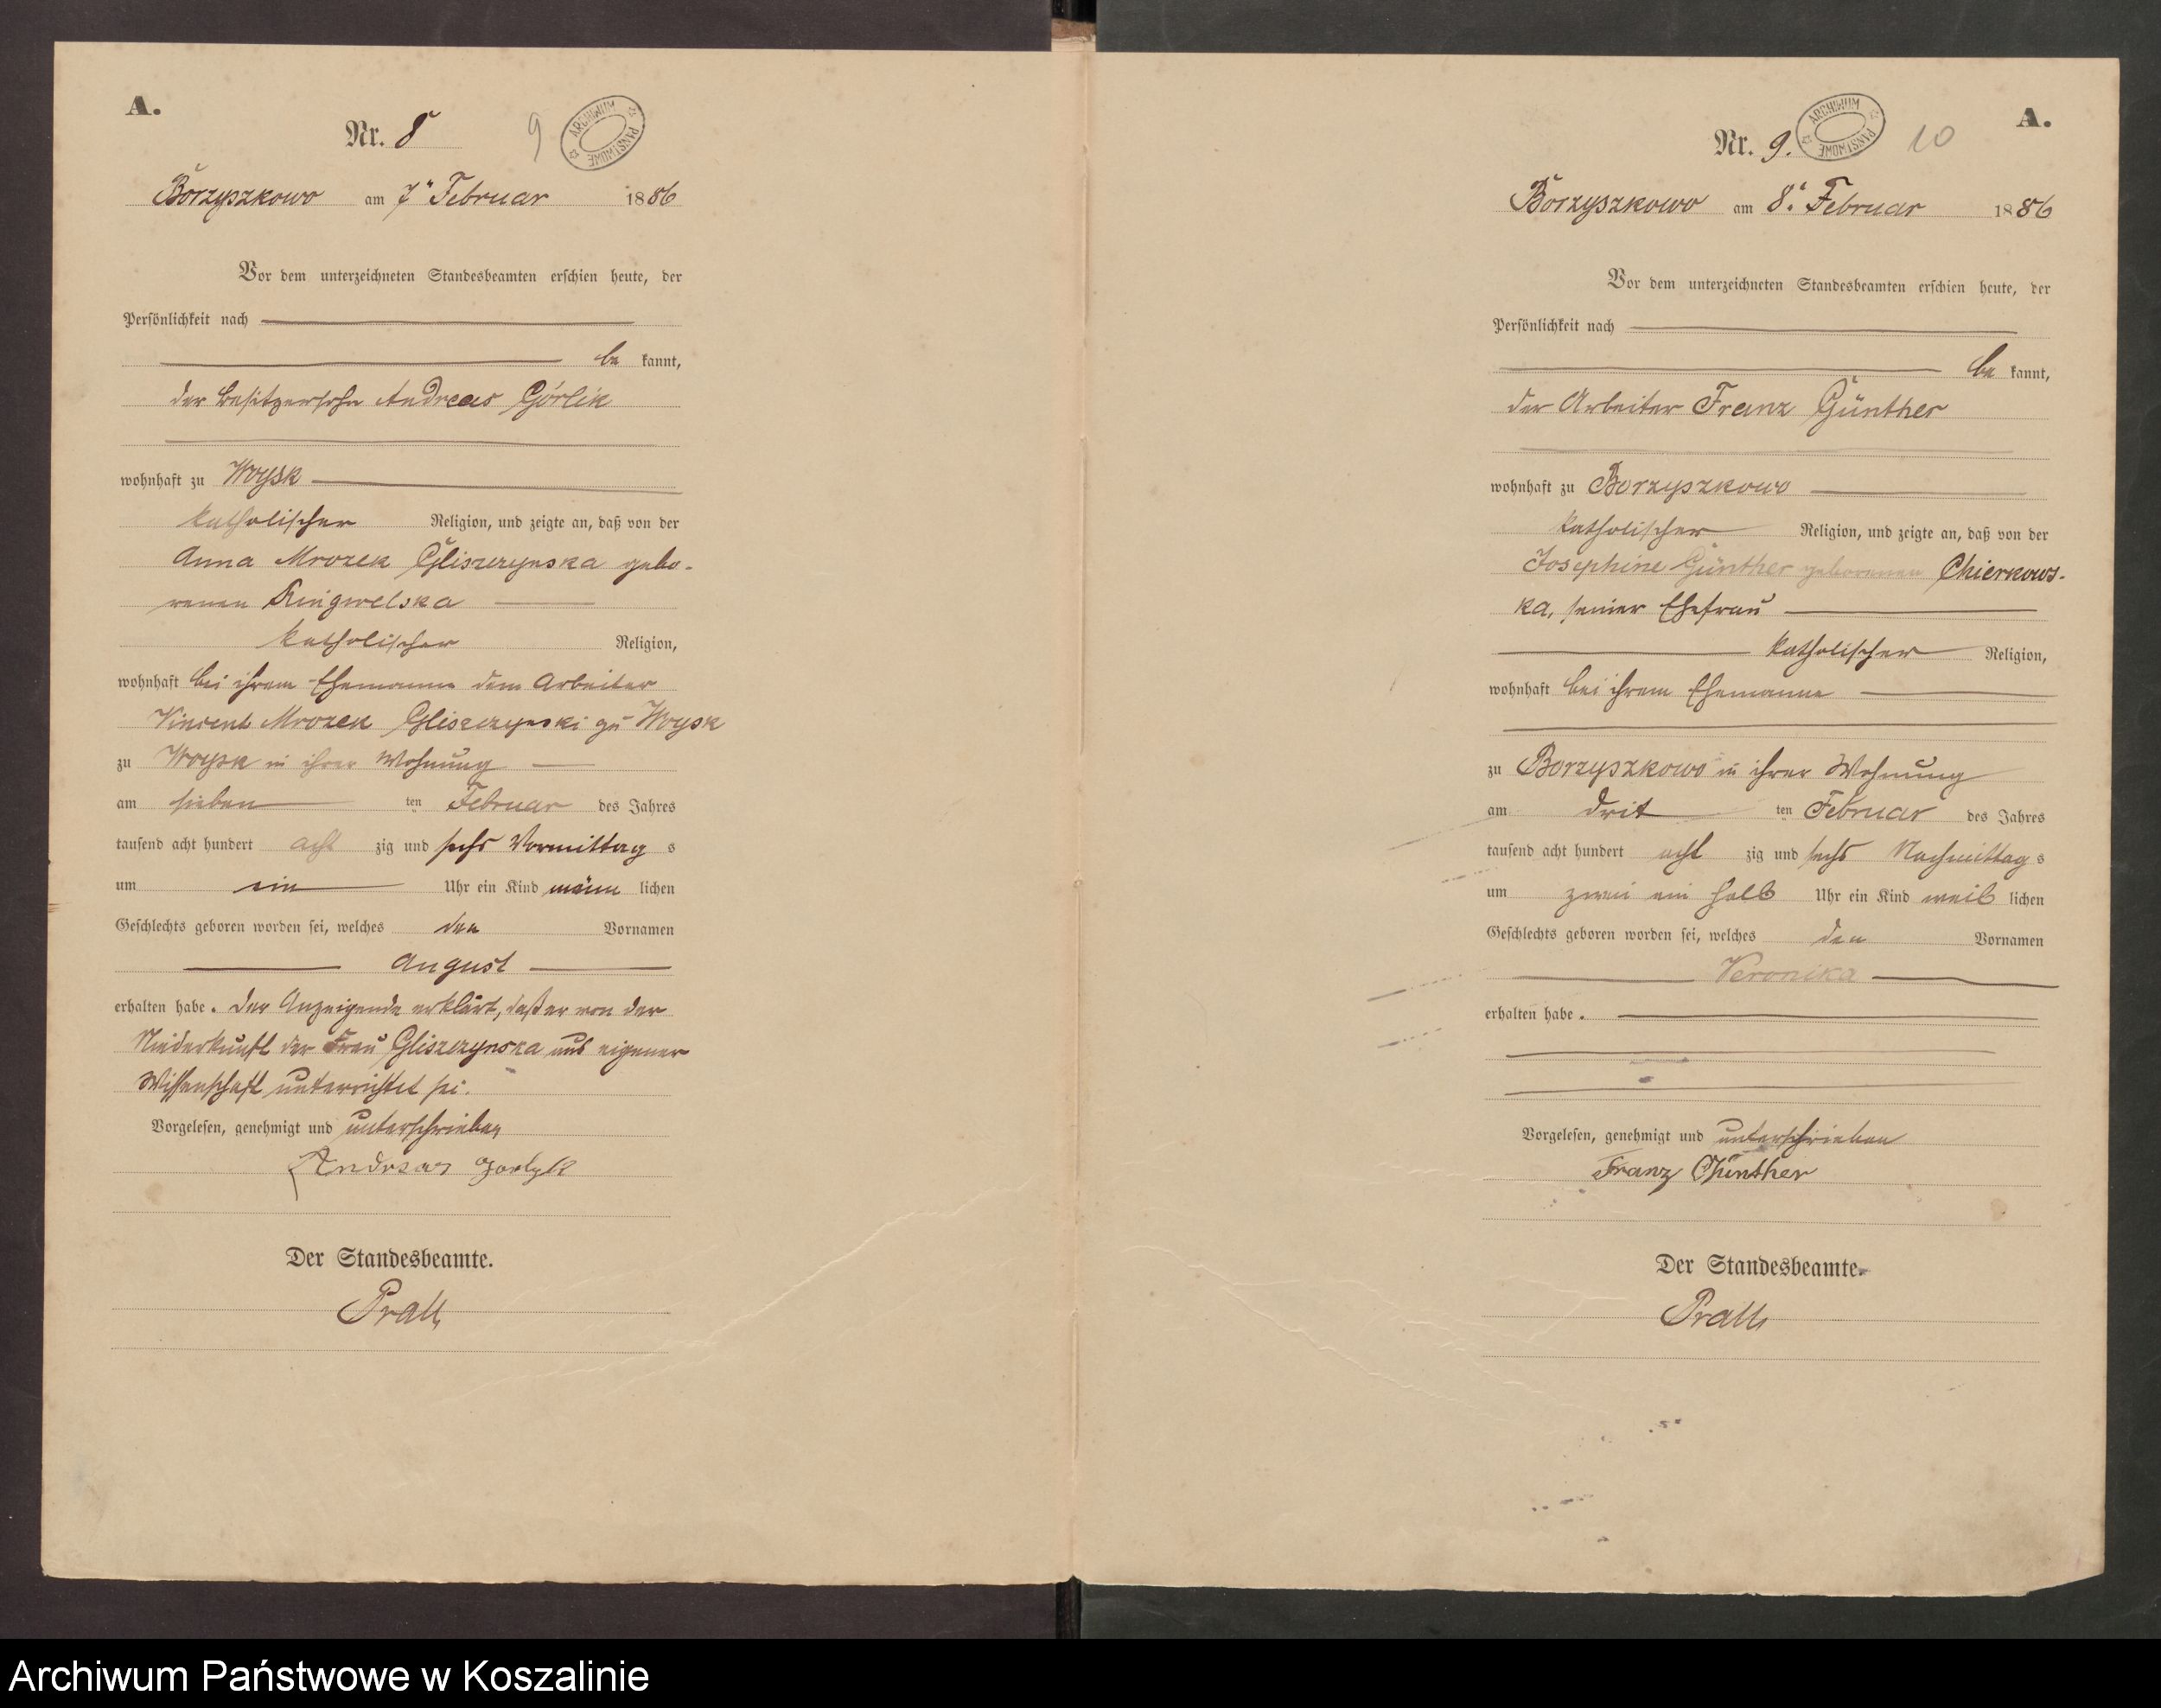 A.
Nr. 8
9
ARCHIWUM PAŃSTWOWE
Borzyszkowo am 7ͭ Februar 1886
Vor dem unterzeichneten Standesbeamten erschien heute, der
Persönlichkeit nach
be kannt,
der Besitzersohn Andreas Görlik
wohnhaft zu Woysk
katholischer Religion, und zeigte an, daß von der
Anna Mrozek Gliszczynska gebo-
renen Kingwelska
katholischer Religion,
wohnhaft bei ihrem Ehemanne dem Arbeiter
Vincent Mrozek Gliszczynski zu Woysk
zu Woysk in ihrer Wohnung
am sieben ten Februar des Jahres
tausend acht hundert acht zig und sechs Vormittag s
um ein Uhr ein Kind männ lichen
Geschlechts geboren worden sei, welches den Vornamen
August
erhalten habe. Der Anzeigende erklärt, daß er von der
Niederkunft der Frau Gliszczynska aus eigener
Wissenschaft unterrichtet sei.
Vorgelesen, genehmigt und unterschrieben
Andreas Gorlyk
Der Standesbeamte.
Prall
A.
Nr. 9.
10
ARCHIWUM PAŃSTWOWE
Borzyszkowo am 8ͭ Februar 1886
Vor dem unterzeichneten Standesbeamten erschien heute, der
Persönlichkeit nach
be kannt,
der Arbeiter Franz Günther
wohnhaft zu Borzyszkowo
katholischer Religion, und zeigte an, daß von der
Josephine Günther geborenen Chierkows-
ka, seiner Ehefrau
katholischer Religion,
wohnhaft bei ihrem Ehemanne
zu Borzyszkowo in ihrer Wohnung
am drit ten Februar des Jahres
tausend acht hundert acht zig und sechs Nachmittag s
um zwei ein halb Uhr ein Kind weib lichen
Geschlechts geboren worden sei, welches den Vornamen
Veronika
erhalten habe.
Vorgelesen, genehmigt und unterschrieben
Franz Günther
Der Standesbeamte.
Prall
Archiwum Państwowe w Koszalinie